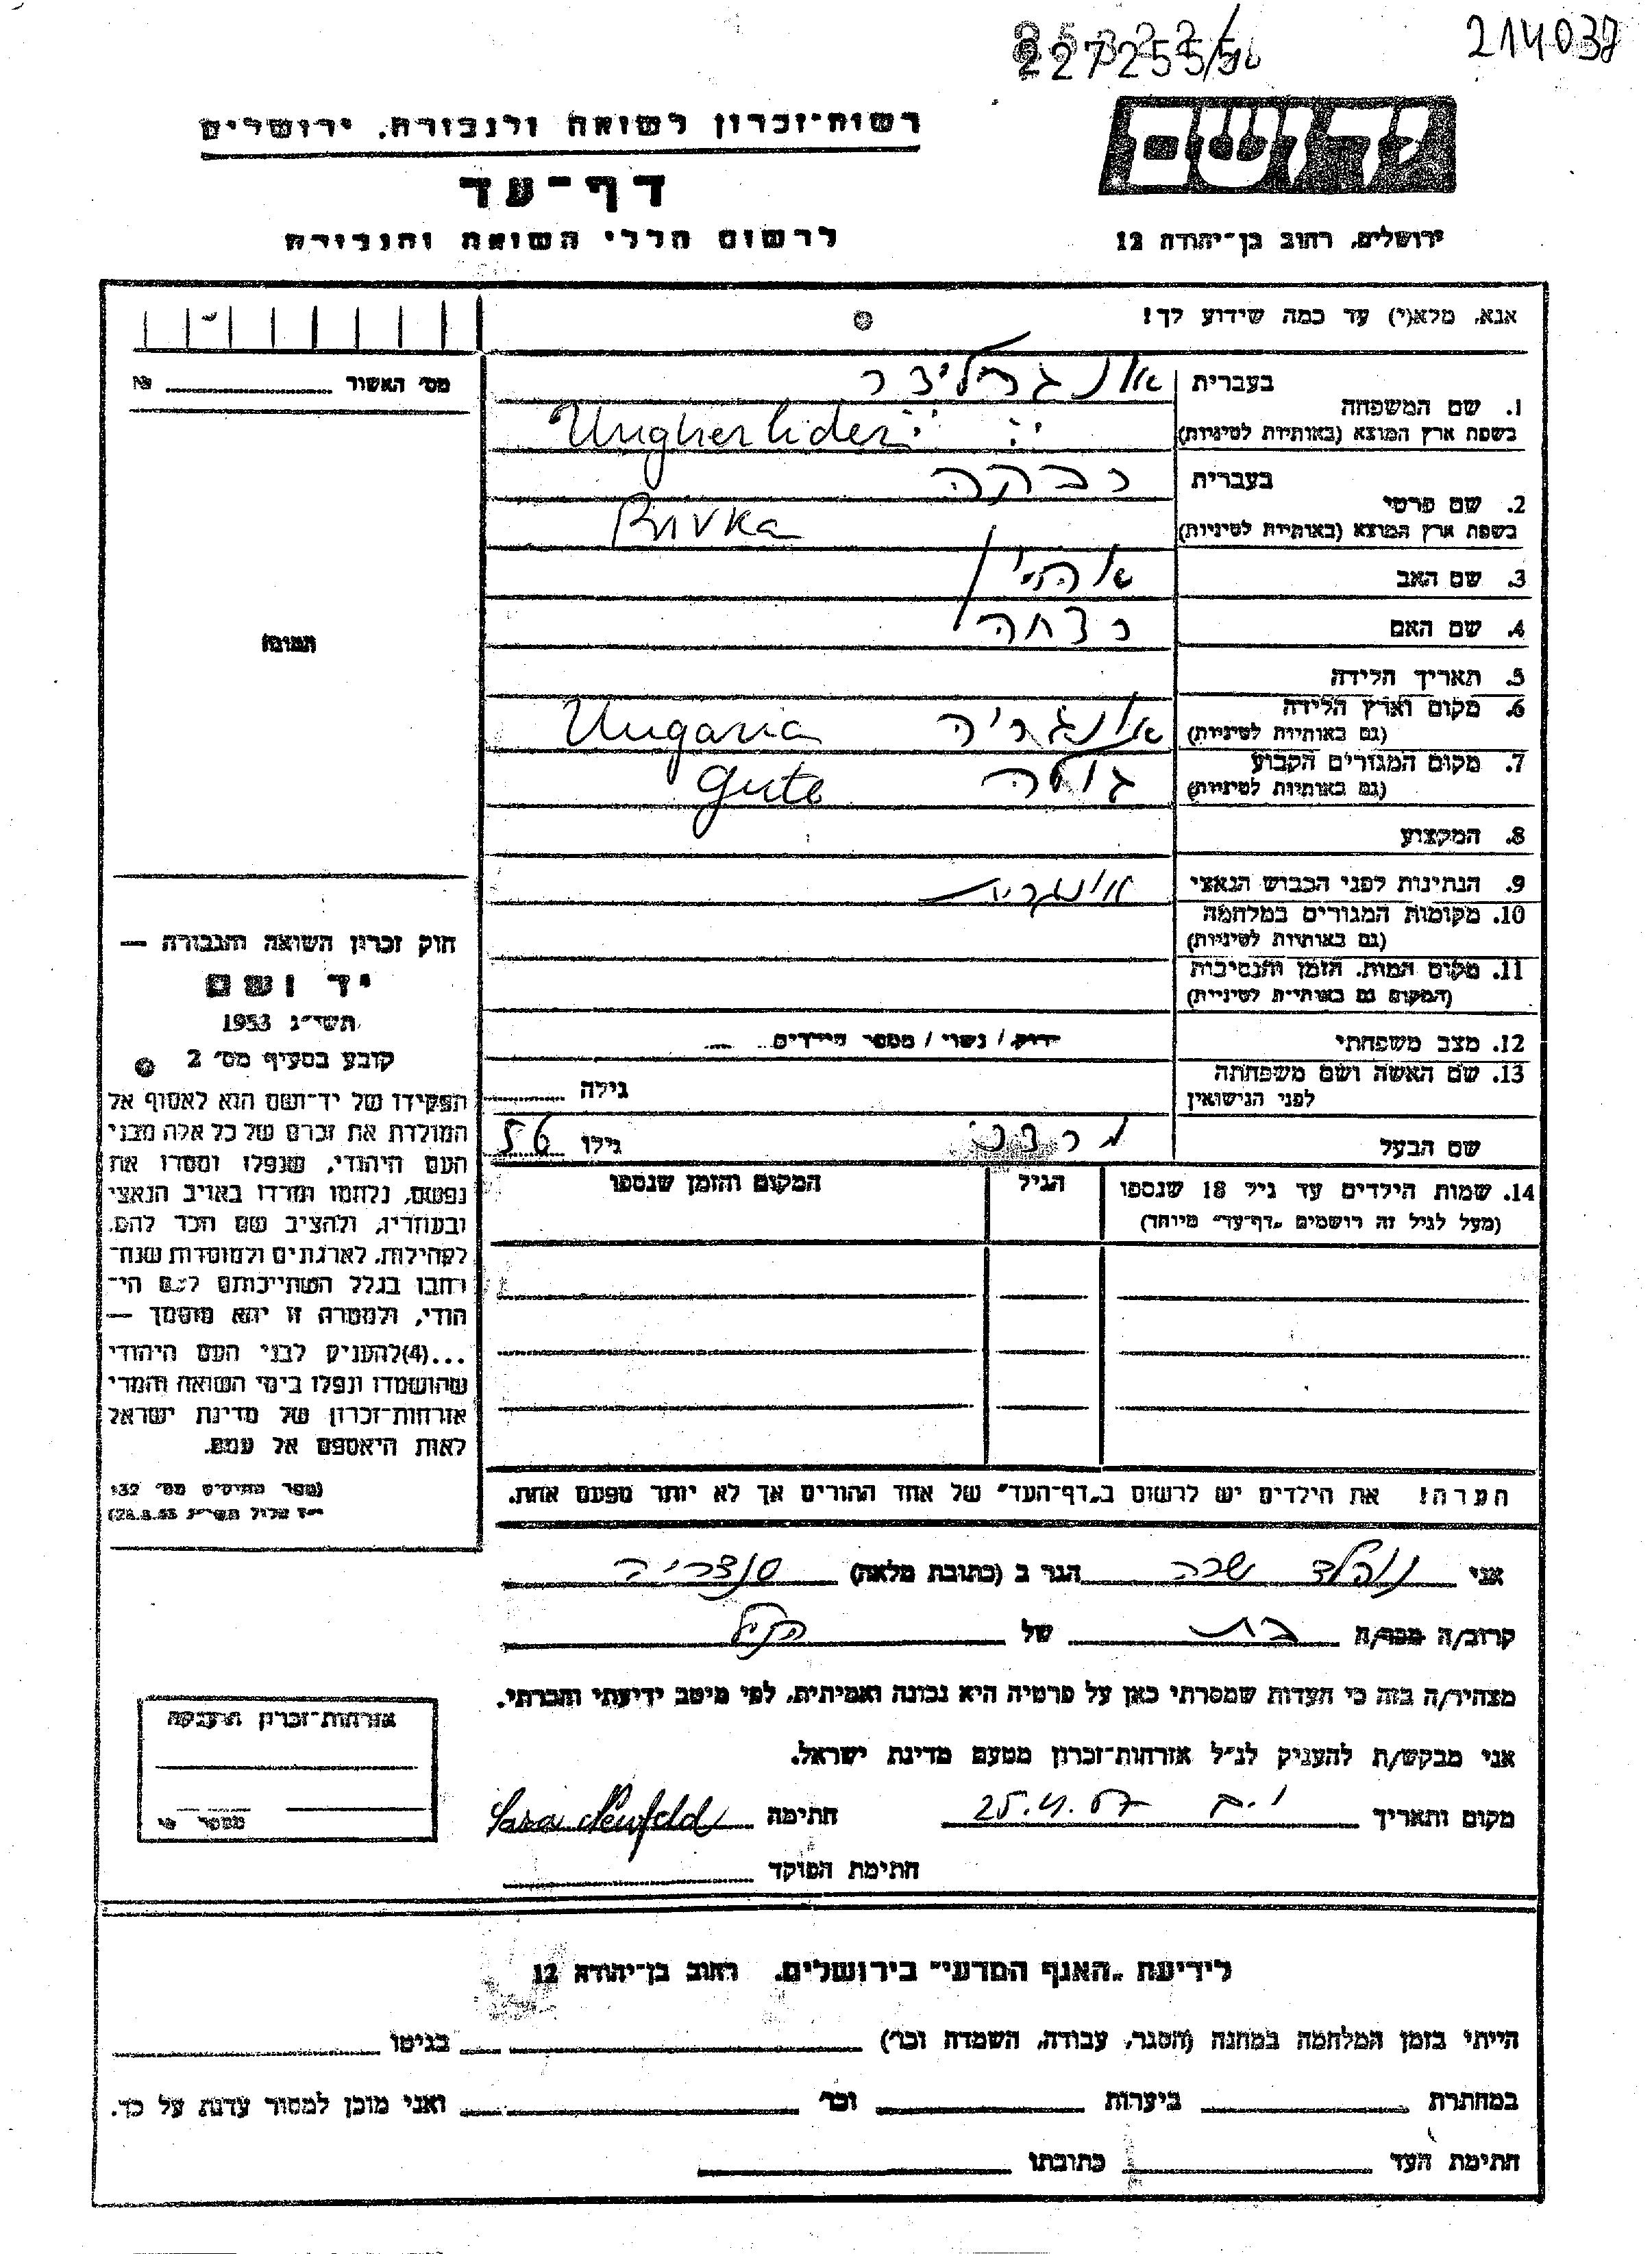 214037
227255/56
יד ושם
רשות־זכרון לשואה ולגבורה, ירושלים
דף־עד
לרשום חללי השואה והגבורה
ירושלים, רחוב בן־יהודה 12
אנא, מלא(י) עד כמה שידוע לך!
מס׳ האשור № 
1. שם המשפחה
בעברית אונגרלידר
בשפת ארץ המוצא (באותיות לטיניות) Ungherlider
2. שם פרטי
בעברית רבקה
בשפת ארץ המוצא (באותיות לטיניות) Rivka
3. שם האב אהרן
4. שם האם
5. תאריך הלידה
6. מקום וארץ הלידה אונגריה Ungaria
(גם באותיות לטיניות)
7. מקום המגורים הקבוע
(גם באותיות לטיניות)
8. המקצוע
9. הנתינות לפני הכבוש הנאצי אונגרית
10. מקומות המגורים במלחמה
(גם באותיות לטיניות)
11. מקום המות, הזמן והנסיבות
(המקום גם באותיות לטיניות)
12. מצב משפחתי רווק / נשוי / מספר הילדים
13. שם האשה ושם משפחתה גילה
לפני הנישואין
שם הבעל גילו 56
14. שמות הילדים עד גיל 18 שנספו הגיל המקום והזמן שנספו
(מעל לגיל זה רושמים „דף־עד״ מיוחד)
הערה! את הילדים יש לרשום ב„דף־העד״ של אחד ההורים אך לא יותר מפעם אחת.
תמונה
חוק זכרון השואה והגבורה —
יד ושם
תשי״ג 1953
קובע בסעיף מס׳ 2
תפקידו של יד־ושם הוא לאסוף אל
המולדת את זכרם של כל אלה מבני
העם היהודי, שנפלו ומסרו את
נפשם, נלחמו ומרדו באויב הנאצי
ובעוזריו, ולהציב שם וזכר להם,
לקהילות, לארגונים ולמוסדות שנח־
רבו בגלל השתייכותם לעם הי־
הודי, ולמטרה זו יהא מוסמך —
...(4)להעניק לבני העם היהודי
שהושמדו ונפלו בימי השואה והמרי
אזרחות־זכרון של מדינת ישראל
לאות היאספם אל עמם.
(ספר החוקים מס׳ 132
אני נויפלד שרה הגר ב (כתובת מלאה) סנהדריה
קרוב/ה מכר/ה בת של הנ״ל
מצהיר/ה בזה כי העדות שמסרתי כאן על פרטיה היא נכונה ואמיתית, לפי מיטב ידיעתי והכרתי.
אני מבקש/ת להעניק לנ״ל אזרחות־זכרון מטעם מדינת ישראל.
מקום ותאריך חתימה Sara Neufeld
חתימת הפוקד
אזרחות־זכרון הוענקה
מספר
לידיעת „האגף המדעי״ בירושלים, רחוב בן־יהודה 12
הייתי בזמן המלחמה במחנה (הסגר, עבודה, השמדה וכו׳) בגיטו
במחתרת ביערות וכו׳ ואני מוכן למסור עדות על כך.
חתימת העד כתובתו